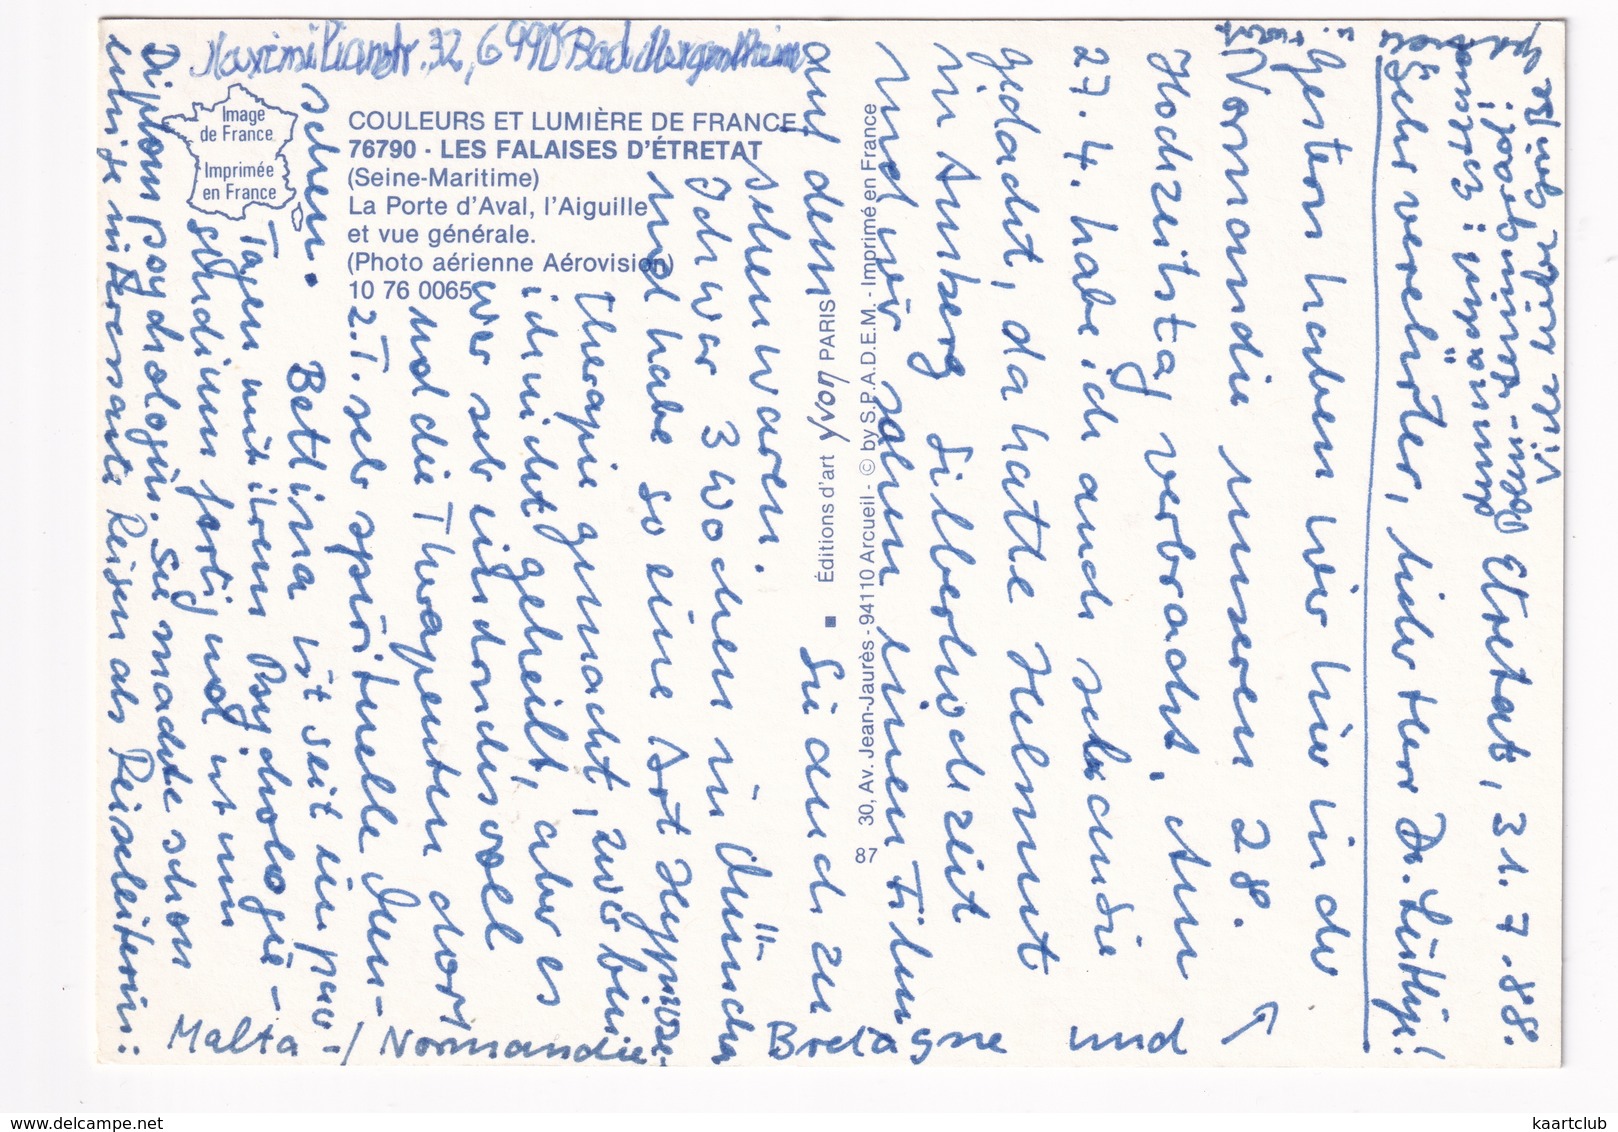 Maximilianstr. 32, 6990 Bad Mergentheim
Image
de France
Imprimée
en France
COULEURS ET LUMIÈRE DE FRANCE
76790 - LES FALAISES D'ÉTRETAT
(Seine-Maritime)
La Porte d'Aval, l'Aiguille
et vue générale.
(Photo aérienne Aérovision)
10 76 0065
Éditions d'art yvon PARIS
30, Av. Jean-Jaurès - 94110 Arcueil - © by S.P.A.D.E.M. - Imprimé en France
87
Etretat, 31.7.88.
Sehr verehrter, lieber Herr Dr. Lüthje!
Gestern haben wir hier in der
Normandie unseren 28.
Hochzeitstag verbracht. Am
27.4. habe ich auch sehr an Sie
gedacht, da hatte Helmut
in Amberg Silberhochzeit
und wir sahen einen Film
auf dem Sie auch zu
sehen waren.
Ich war 3 Wochen in München
und habe so eine Art Hypnose-
therapie gemacht, zwar bin
ich nicht geheilt, aber es
war sehr eindrucksvoll
und die Therapeuten dort
z.T. sehr spirituelle Men-
schen. Bettina ist seit ein paar
Tagen mit ihrem Psychologie-
studium fertig und ist nun
Diplompsychologin. Sie machte schon
interessante Reisen als Reiseleiterin:
Malta -/ Normandie
Bretagne und
Viele liebe Grüße